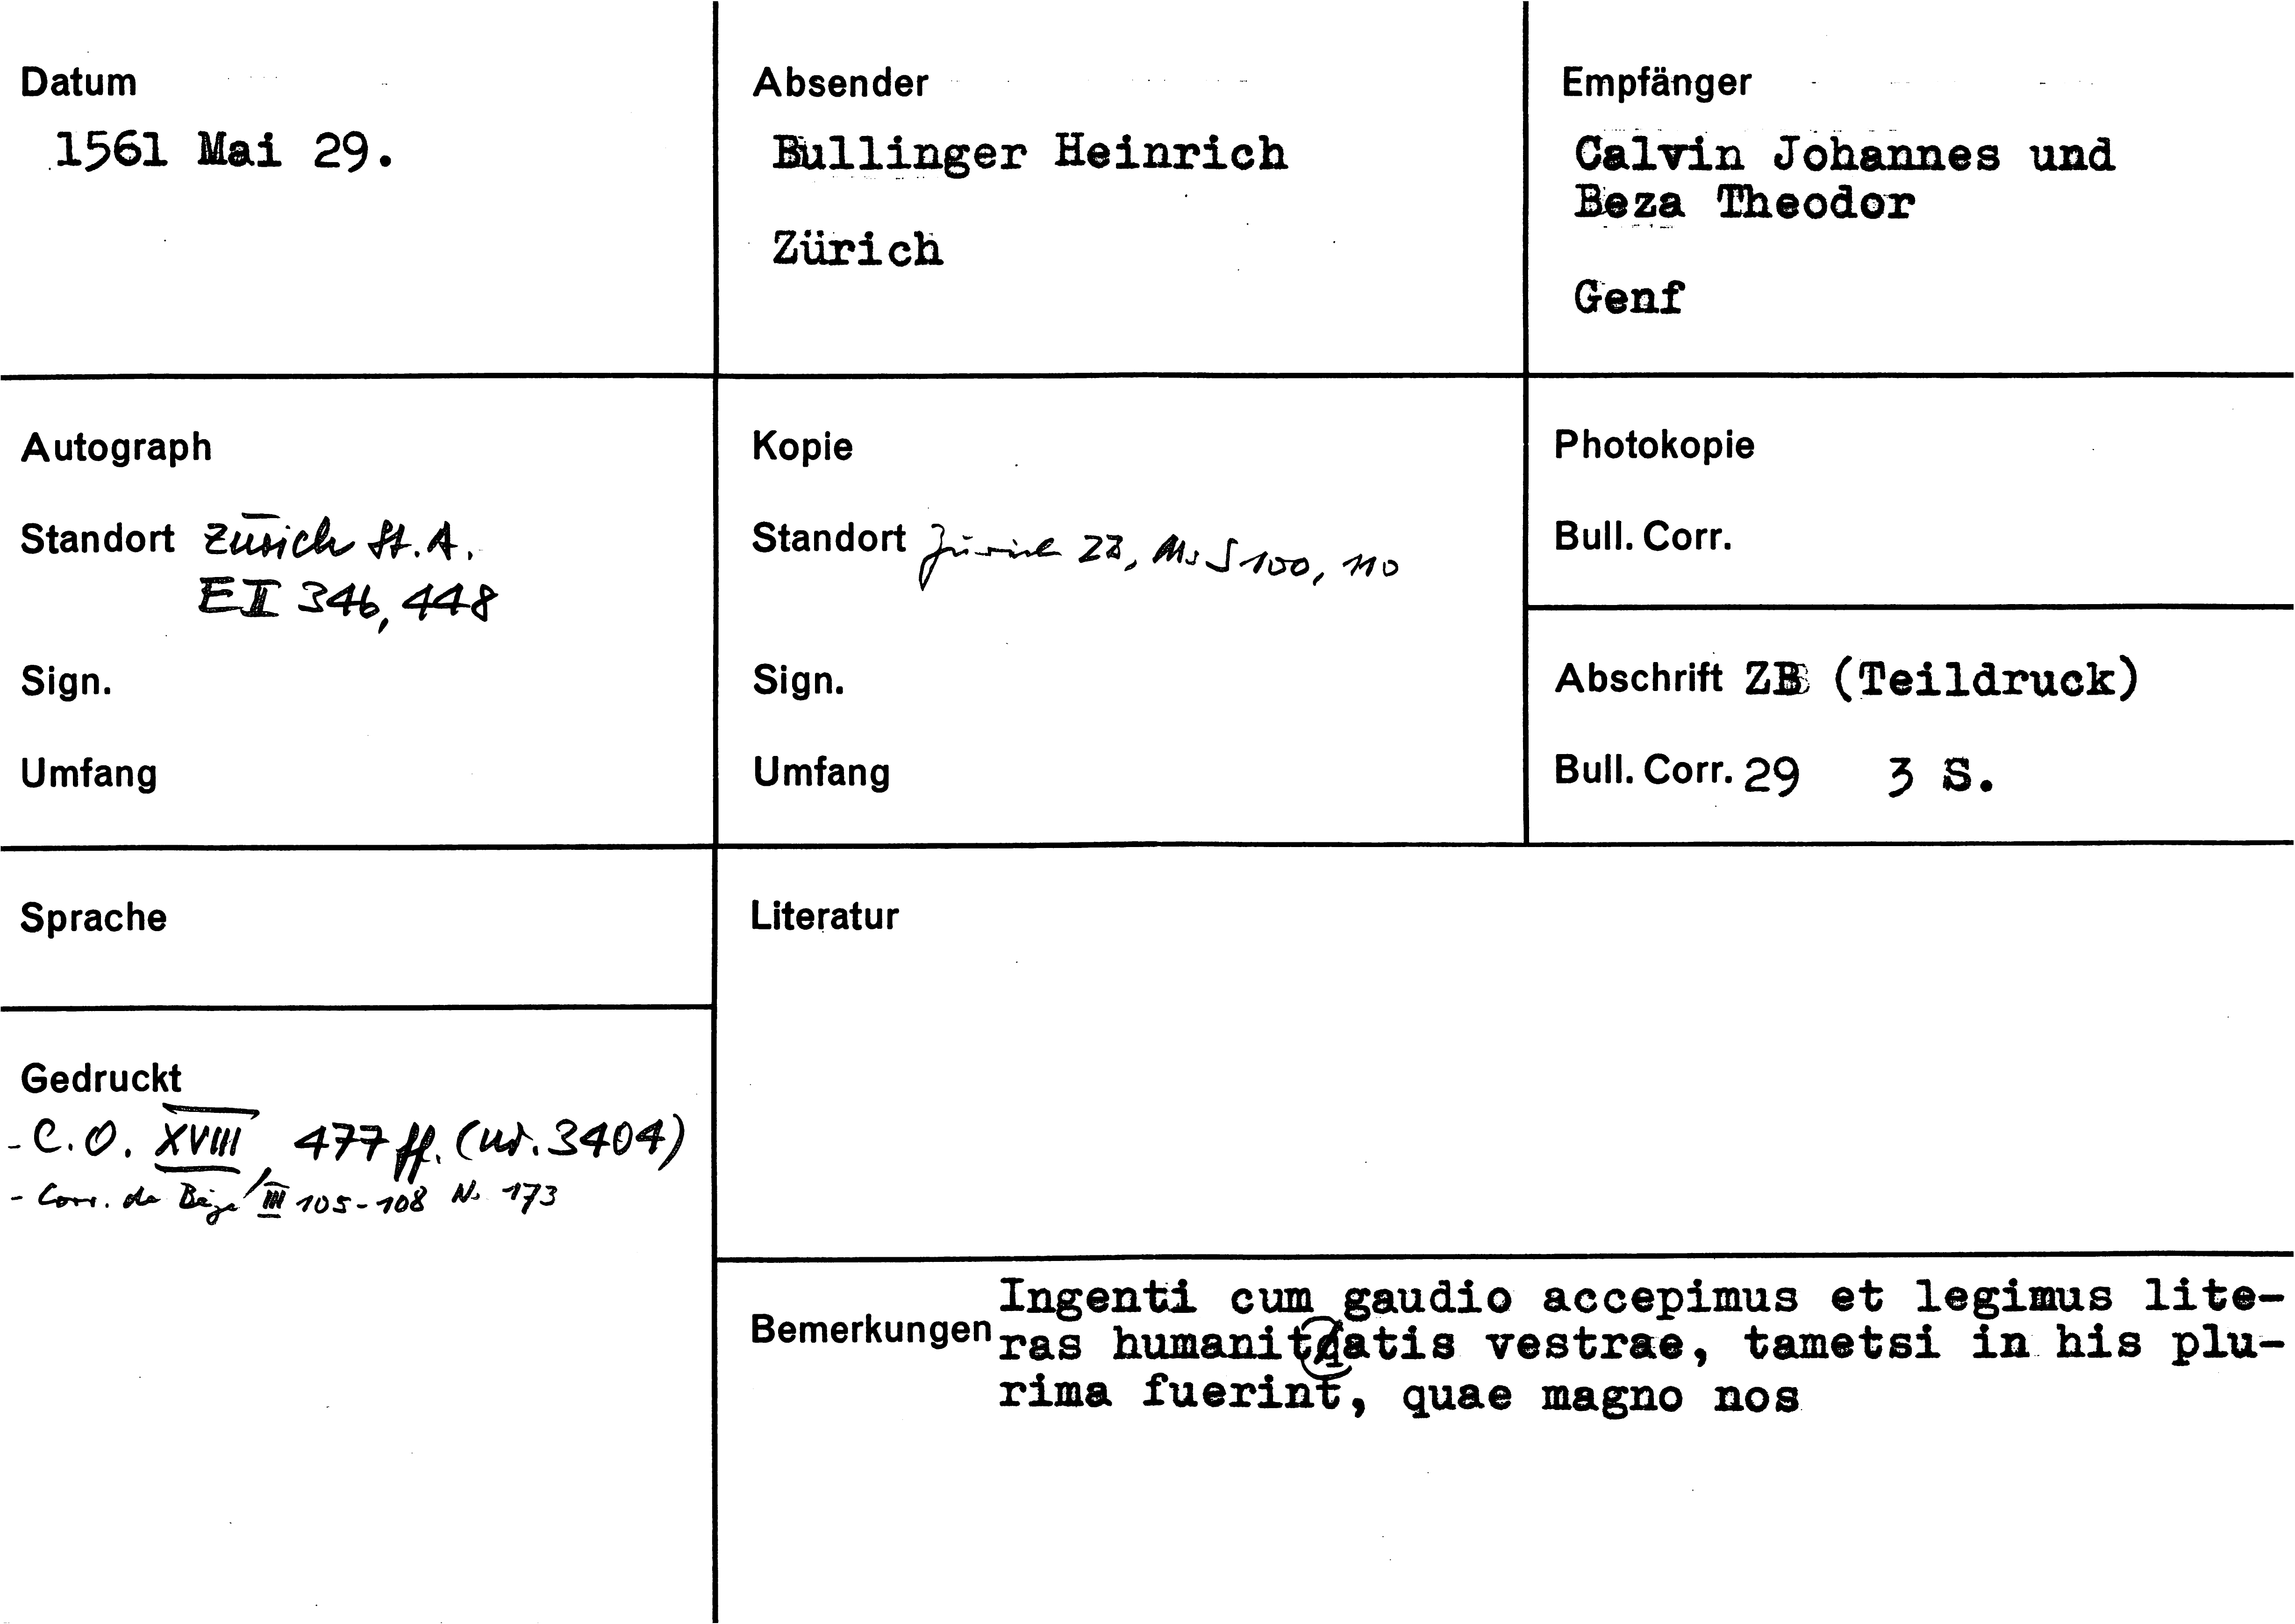 Datum
1561 Mai 29.
Absender
Bullinger Heinrich
Zürich
Empfänger
Calvin Johannes und
Beza Theodor
Genf
Autograph
Standort Zürich St.A.
E II 346, 448
Sign.
Umfang
Kopie
Standort Zürich ZB, Ms S 100, 110
Sign.
Umfang
Photokopie
Bull. Corr.
Abschrift ZB (Teildruck)
Bull. Corr. 29 3 S.
Sprache
Literatur
Gedruckt
- C.O. XVIII 477 ff. (nr. 3404)
- Corr. de Bèze III 105-108 No 173
Bemerkungen
Ingenti cum gaudio accepimus et legimus lite-
ras humanitatis vestrae, tametsi in his plu-
rima fuerint, quae magno nos